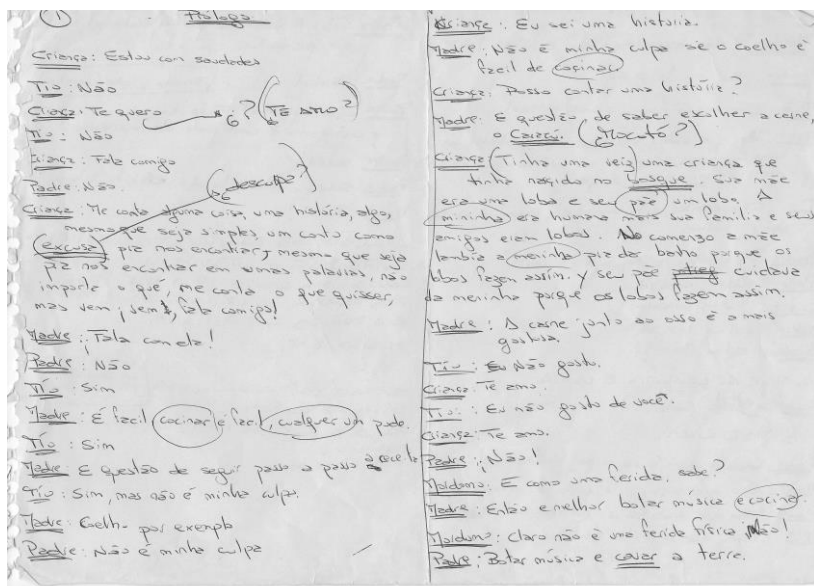 1
Prólogo
Criança: Estou con saudades
Tio: Não
Criança: Te quero ó? (TE AMO?)
Tio: Não
Criança: Fala comigo
Padre: Não. (desculpa?)
Criança: Me conta alguma coisa, uma história, algo,
mesmo que seja simples, um conto como
excusa pra nos encontrar, mesmo que seja
pra nos encontrar em umas palavras, não
importa o quê, me conta o que quisser,
mas vem ¡vem!, fala comigo!
Madre: ¡Fala com ela!
Padre: Não
Tío: Sim
Madre: É facil cocinar e facil, cualquer um pode.
Tío: Sim
Madre: E questão de seguir passo a passo a receita
Tío: Sim, mas não é minha culpa.
Madre: Coelho por exemplo
Padre: Não é minha culpa
Criança: Eu sei uma historia.
Madre: Não é minha culpa se o coelho é
facil de cocinar
Criança: Posso contar uma história?
Madre: E questão de saber escolher a carne,
o Caracú. (Mocotó?)
Criança (Tinha uma veis) uma criança que
tinha nascido no bosque. Sua mãe
era uma loba e seu pãe um lobo. A
mininha era humana mais sua familia e seus
amigos eram lobos. No comenzo a mãe
lambia a meninha pra dar banho porque os
lobos fazem assim. y seu pãe cuidava
da meninha porque os lobos fazem assim.
Madre: A carne junto ao osso é a mais
gostosa.
Tío: Eu Não gosto.
Criança: Te amo.
Tío: Eu não gosto de você.
Criança: Te amo.
Padre: ¡Não!
Mordomo: E como uma ferida, sabe?
Madre: Então e melhor botar música e cocinar.
Mordomo: Claro não é uma ferida física, Não!
Padre: Botar música e cavar a terra.